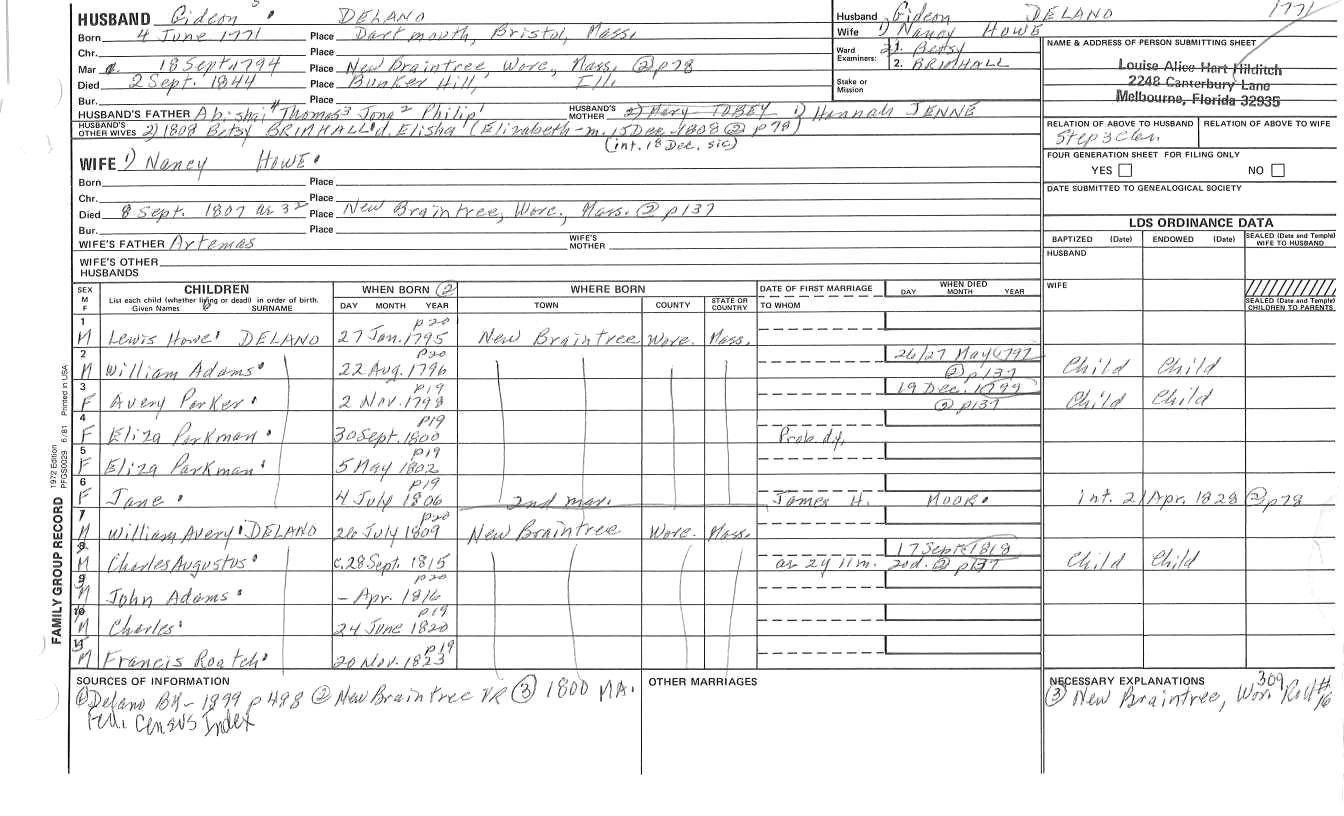 HUSBAND Gideon 5 DELANO
Born 4 June 1771 Place Dartmouth, Bristol, Mass.
Chr. Place
Mar 1. 18 Sept. 1794 Place New Braintree, Worc, Mass, @ p78
Died 2 Sept. 1844 Place Bunker Hill, Ill.
Bur. Place
HUSBAND'S FATHER Abishai 4 Thomas 3 Jona 2 Philip 1 HUSBAND'S MOTHER 2) Mary TOBEY 1) Hannah JENNE
HUSBAND'S OTHER WIVES 2) 1808 Betsy BRIMHALL d. Elisha (Elizabeth - m. 15 Dec. 1808 ② p78)
(int. 18 Dec, sic)
WIFE 1) Nancy HOWE
Born Place
Chr. Place
Died 8 Sept. 1807 ae 32 Place New Braintree, Worc, Mass. ② p137
Bur. Place
WIFE'S FATHER Artemas WIFE'S MOTHER
WIFE'S OTHER HUSBANDS
Husband Gideon DELANO 1771
Wife 1) Nancy HOWE
Ward Examiners: 1. 2) Betsy
2. BRIMHALL
Stake or Mission
NAME & ADDRESS OF PERSON SUBMITTING SHEET
Louise Alice Hart Hilditch
2248 Canterbury Lane
Melbourne, Florida 32935
RELATION OF ABOVE TO HUSBAND RELATION OF ABOVE TO WIFE
FOUR GENERATION SHEET FOR FILING ONLY
YES NO
DATE SUBMITTED TO GENEALOGICAL SOCIETY
LDS ORDINANCE DATA
BAPTIZED (Date) ENDOWED (Date) SEALED (Date and Temple) WIFE TO HUSBAND
HUSBAND
WIFE
SEALED (Date and Temple) CHILDREN TO PARENTS
SEX M F CHILDREN WHEN BORN ② WHERE BORN DATE OF FIRST MARRIAGE WHEN DIED
List each child (whether living or dead) in order of birth.
Given Names SURNAME DAY MONTH YEAR TOWN COUNTY STATE OR COUNTRY TO WHOM DAY MONTH YEAR
1 M Lewis Howe DELANO 27 Jan. 1795 p20 New Braintree Worc. Mass.
2 M William Adams 22 Aug. 1796 p20 26/27 May 1797 ② p137 Child Child
3 F Avery Parker 2 Nov. 1798 p19 19 Dec. 1799 ② p137 Child Child
4 F Eliza Parkman 30 Sept. 1800 p19 Prob. d.y.
5 F Eliza Parkman 5 May 1802 p19
6 F Jane 4 July 1806 p19 2nd mar. James H. MOOR int. 21 Apr. 1828 ② p78
7 M William Avery DELANO 26 July 1809 p20 New Braintree Worc. Mass.
8 M Charles Augustus c. 28 Sept. 1815 ae 2y 11m. 20d. 17 Sept. 1818 ② p137 Child Child
9 M John Adams - Apr. 1816 p20
10 M Charles 24 June 1820 p19
11 M Francis Roatch 20 Nov. 1823 p19
SOURCES OF INFORMATION
① Delano BK - 1899 p498 ② New Braintree VR ③ 1800 MA.
Fed. Census Index
OTHER MARRIAGES
NECESSARY EXPLANATIONS
③ New Braintree, Wor. 309 Roll #16
FAMILY GROUP RECORD
1972 Edition
PFGS0029 6/81 Printed in USA